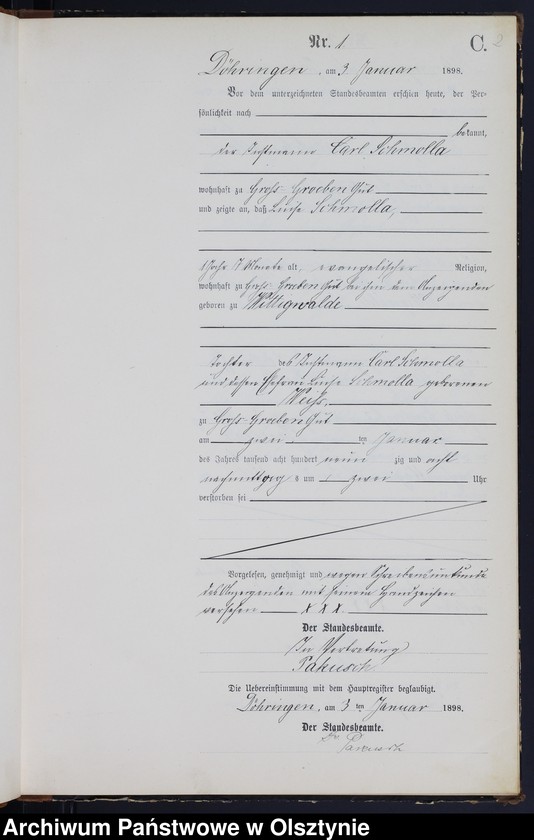 Nr. 1 C. 2
Döhringen, am 3 Januar 1898.
Vor dem unterzeichneten Standesbeamten erschien heute, der Per-
sönlichkeit nach
bekannt,
der Instmann Carl Schmolla
wohnhaft zu Groß-Groeben Gut
und zeigte an, daß Luise Schmolla,
1 Jahr 7 Monate alt, evangelischer Religion,
wohnhaft zu Groß-Groeben Gut bei ihm dem Anzeigenden
geboren zu Wittigwalde
Tochter des Instmann Carl Schmolla
und dessen Ehefrau Luise Schmolla geborenen
Weiß,
zu Groß-Groeben Gut
am zwei ten Januar
des Jahres tausend acht hundert neun zig und acht
nachmittags um zwei Uhr
verstorben sei
Vorgelesen, genehmigt und wegen Schreibensunkunde
des Anzeigenden mit seinem Handzeichen
versehen X X X
Der Standesbeamte.
In Vertretung
Pakusch
Die Uebereinstimmung mit dem Hauptregister beglaubigt.
Döhringen, am 3 ten Januar 1898.
Der Standesbeamte.
Pakusch
Archiwum Państwowe w Olsztynie